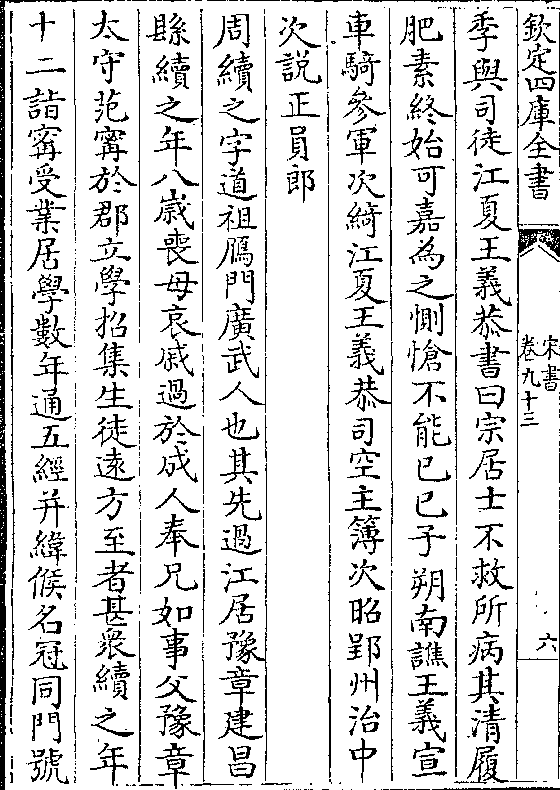 欽定四庫全書
宋書
卷九十三
六
季與司徒江夏王義恭書曰宗居士不救所病其清履
肥素終始可嘉為之惻愴不能已已子朔南譙王義宣
車騎參軍次綺江夏王義恭司空主簿次昭郢州治中
次說正員郎
周續之字道祖鴈門廣武人也其先過江居豫章建昌
縣續之年八嵗喪母哀戚過於成人奉兄如事父豫章
太守范寗於郡立學招集生徒遠方至者甚衆續之年
十二詣寗受業居學數年通五經并緯候名冠同門號